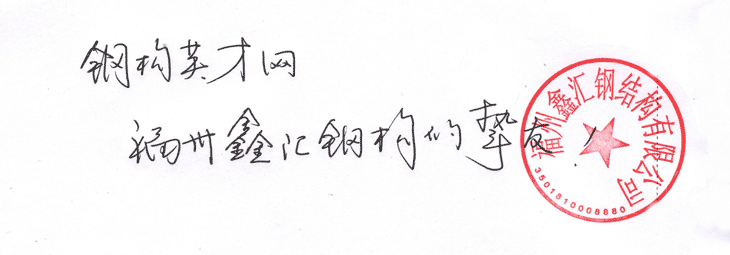 钢构英才网
福州鑫汇钢构的挚友！
福州鑫汇钢结构有限公司
3501810008880